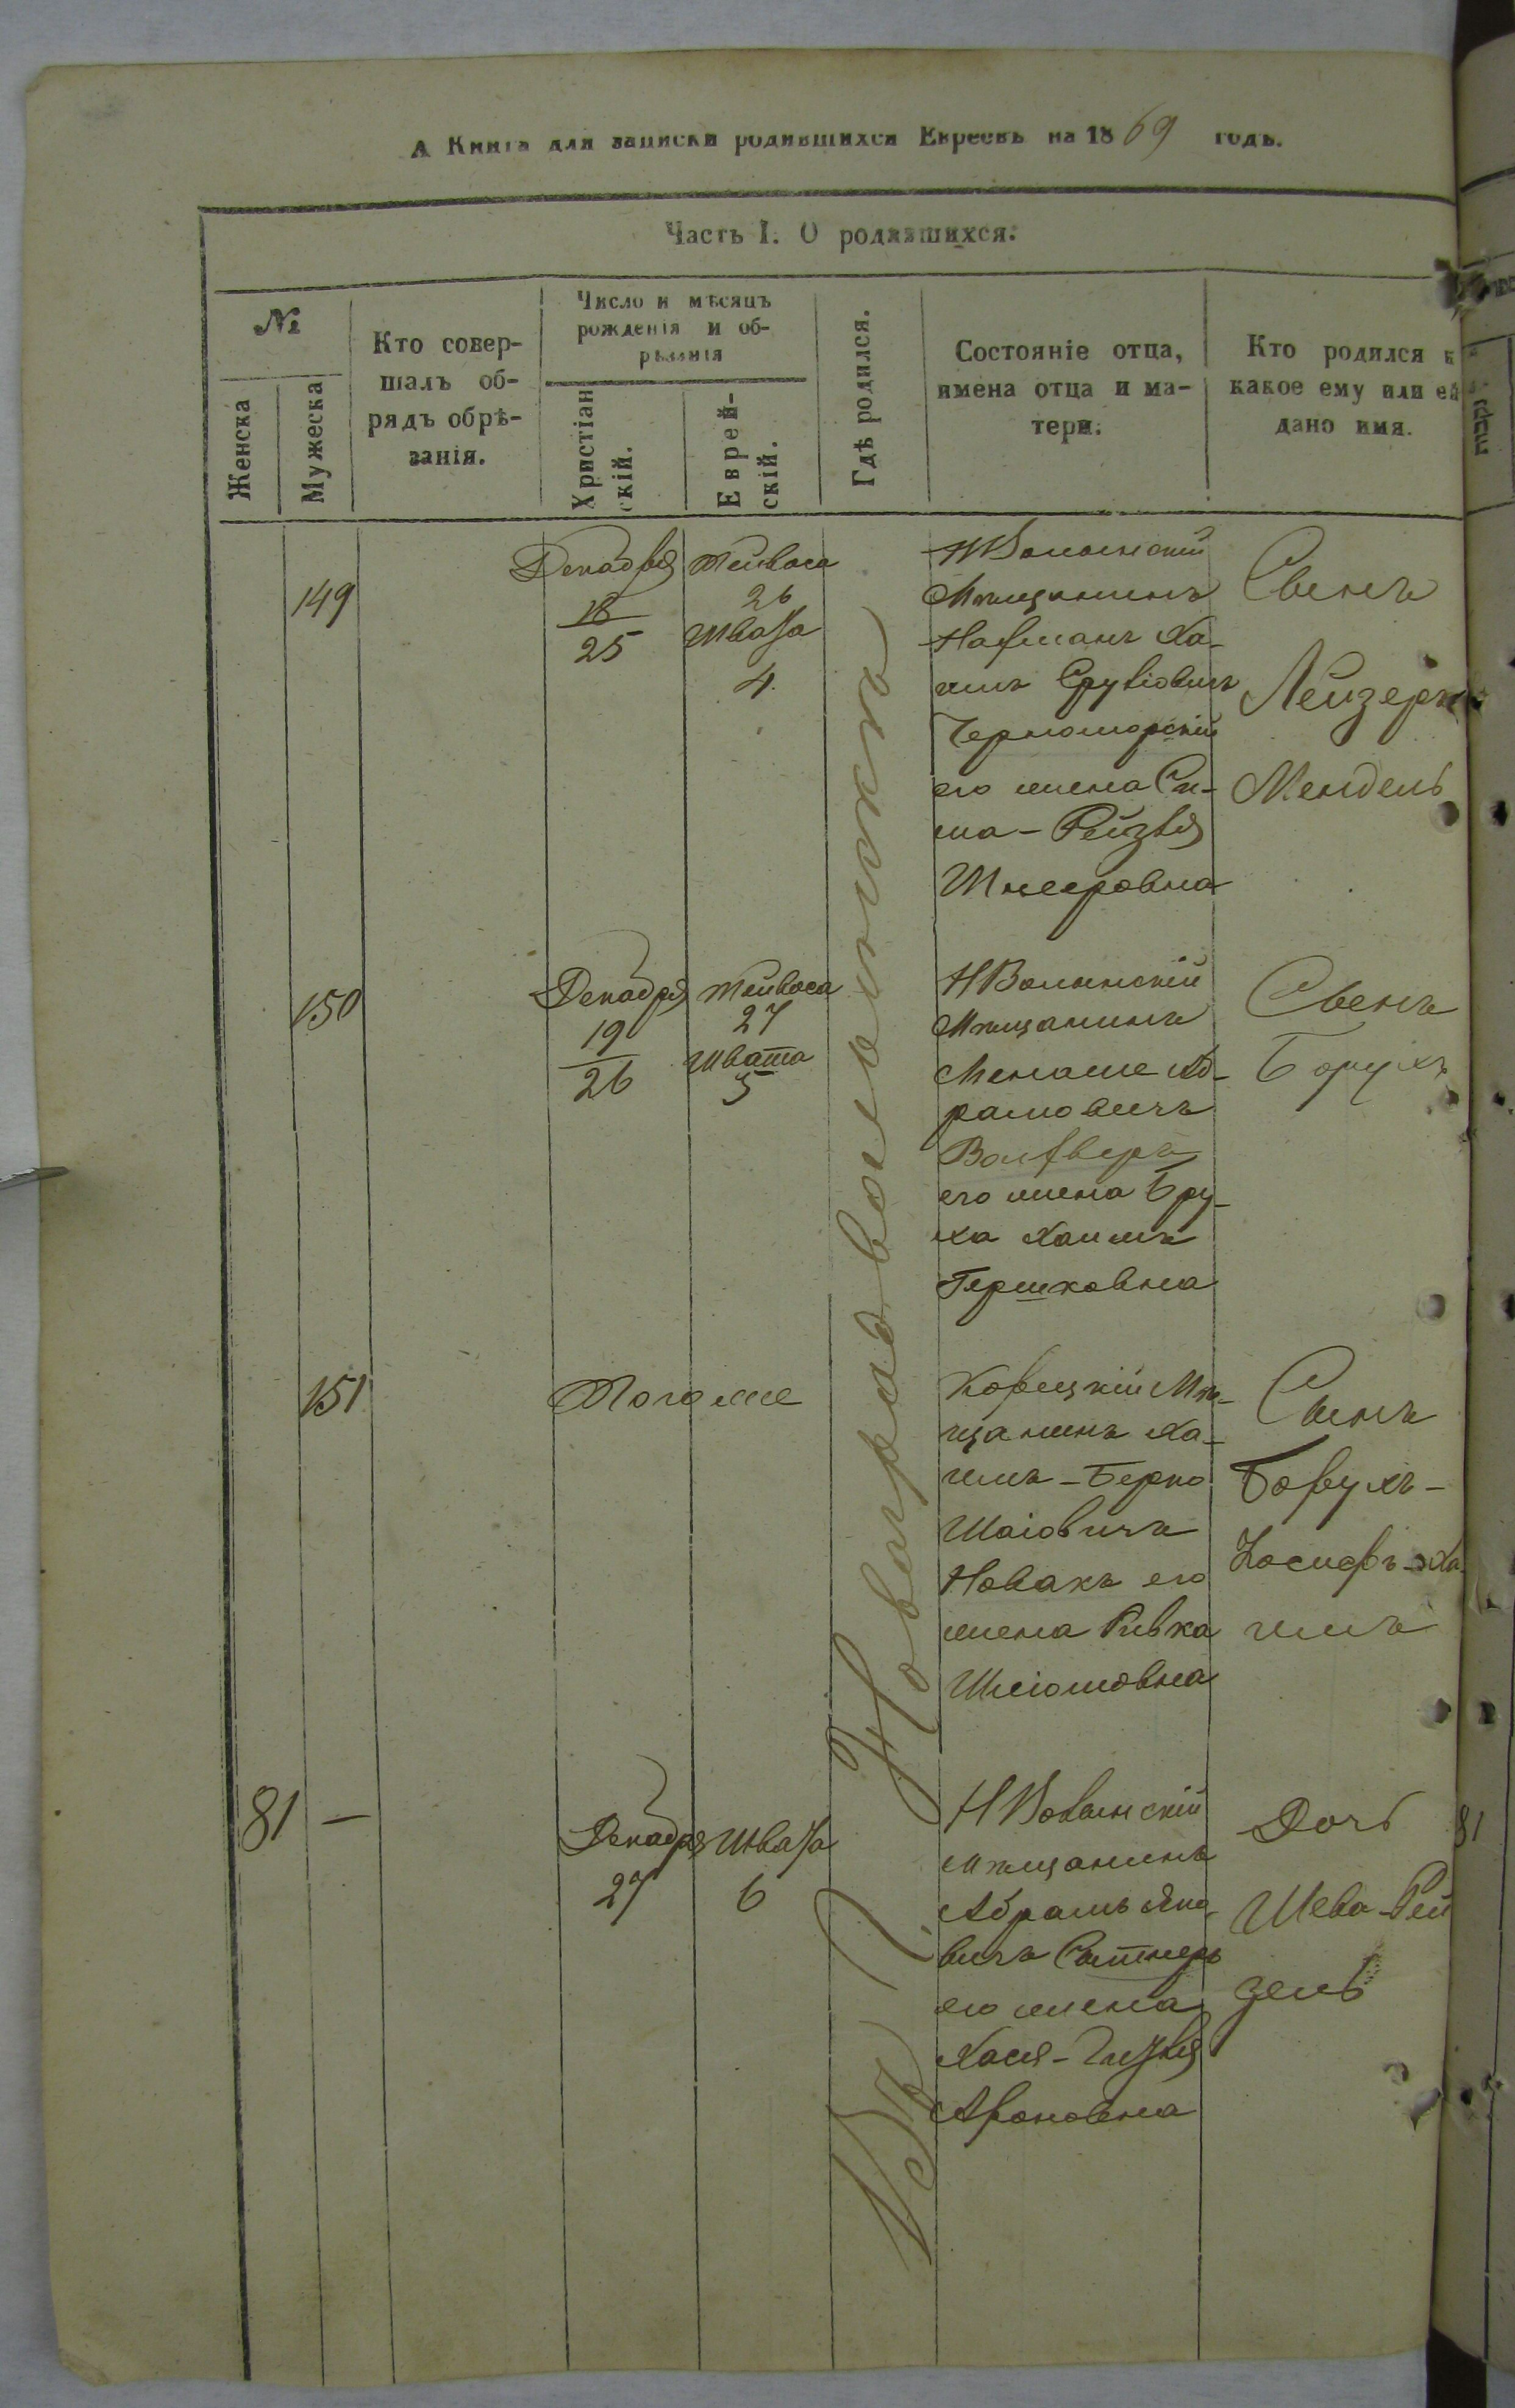 А Книга для записки родившихся Евреевъ на 1869 годъ.
Часть I. О родившихся.
№
Женска
Мужеска
Кто совер-
шалъ об-
рядъ обрѣ-
занія.
Число и мѣсяцъ
рожденія и об-
рѣзанія
Христіан
скій.
Еврей-
скій.
Гдѣ родился.
Состояніе отца,
имена отца и ма-
тери.
Кто родился и
какое ему или ей
дано имя.
Новградволынскъ
149
Декабря
18
25
Тейвеса
26
Швата
4
НВолынский
Мѣщанинъ
Ха-
имъ Срулiовичъ
Черноморскій
его жена Си-
ма-Рейзя
Шнееровна
Сынъ
Лейзеръ
Мендель
150
Декабря
19
26
Тейвеса
27
Швата
5
НВолынскій
Мѣщанинъ
Менаше Аб-
рамовичъ
его жена Бру-
ха Хаимъ
Гершковна
Сынъ
Борухъ
151
Тогоже
Корецкій Мѣ-
щанинъ Ха-
имъ-Берко
Шаіовичъ
Новакъ его
жена Ривка
Шліомовна
Сынъ
Борухъ-
Іосифъ-Ха
имъ
81 —
Декабря
27
Швата
6
НВолынскій
мѣщанинъ
Абрамъ Янко-
вичъ Ситнеръ
его жена
Хася-
Ароновна
Дочь
Шева-Рей
зель
81